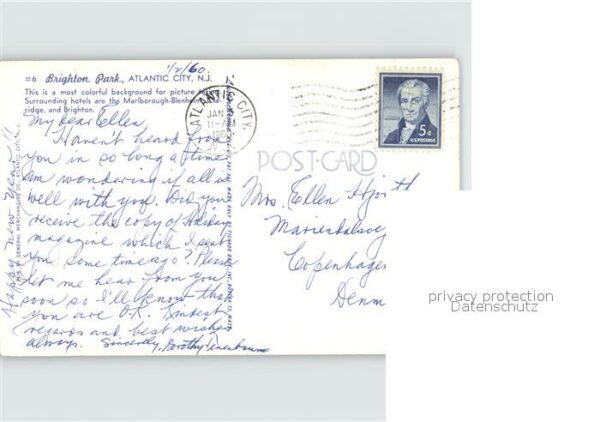 1/2/60.
#6 Brighton Park, ATLANTIC CITY, N.J.
This is a most colorful background for picture
Surrounding hotels are the Marlborough-Blenheim,
ridge, and Brighton.
My dear Ellen,
Haven't heard from
you in so long a time
am wondering if all is
well with you. Did you
receive the copy of Holiday
magazine which I sent
you some time ago? Please
let me hear from you
soon so I'll know that
you are O.K. Kindest
regards and best wishes
always. Sincerely, Dorothy
Happy New Year!!
ATLANTIC CITY,
JAN
11-AM
POST CARD
5¢
U.S. POSTAGE
Mrs. Ellen
Copenhagen
Denm
privacy protection
Datenschutz